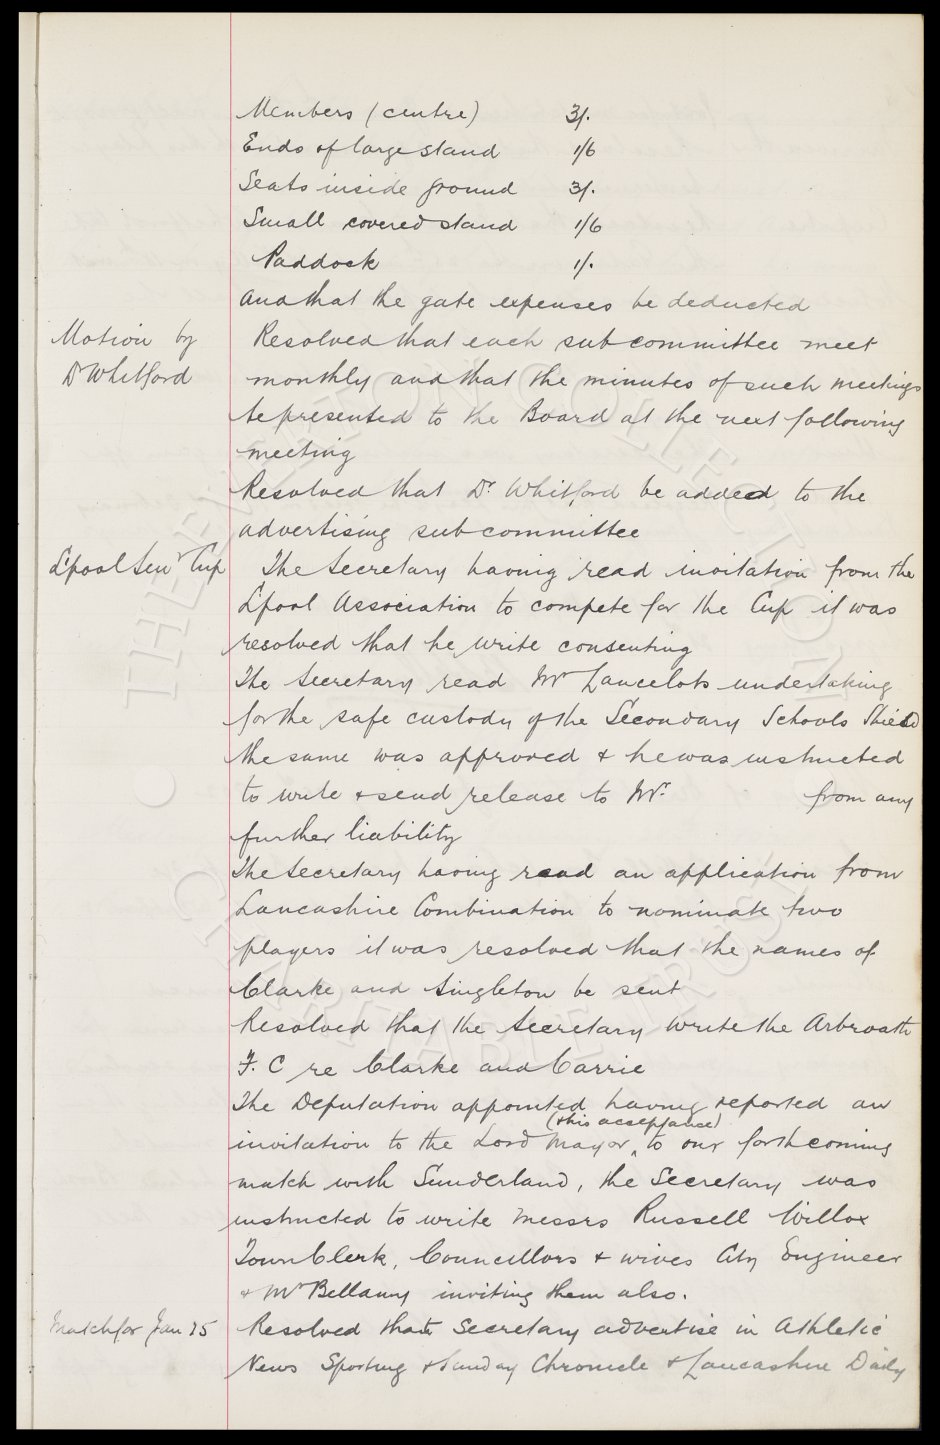 Members (centre) 3/.
Ends of large stand 1/6
Seats inside ground 3/.
Small covered stand 1/6
Paddock 1/.
and that the gate expenses be deducted
Motion by Dr Whitford
Resolved that each sub committee meet
monthly and that the minutes of such meetings
be presented to the Board at the next following
meeting
Resolved that Dr. Whitford be added to the
advertising sub committee
L'pool Sen r Cup
The Secretary having read invitation from the
L'pool Association to compete for the Cup it was
resolved that he write consenting
The Secretary read Mr Lancelots undertaking
for the safe custody of the Secondary Schools Shield
the same was approved & he was instructed
to write & send release to Mr. from any
further liability
The Secretary having read an application from
Lancashire Combination to nominate two
players it was resolved that the names of
Clarke and Singleton be sent
Resolved that the Secretary write the Arbroath
F. C re Clarke and Carrie
The Deputation appointed having reported an
(& his acceptance)
invitation to the Lord Mayor ‸ to our forthcoming
match with Sunderland, the Secretary was
instructed to write Messrs Russell Willox
Town Clerk, Councillors & wives City Engineer
& Mr Bellamy inviting them also.
Match for Jan 25
Resolved that Secretary advertise in Athletic
News Sporting & Sunday Chronicle & Lancashire Daily
© THE EVERTON COLLECTION CHARITABLE TRUST